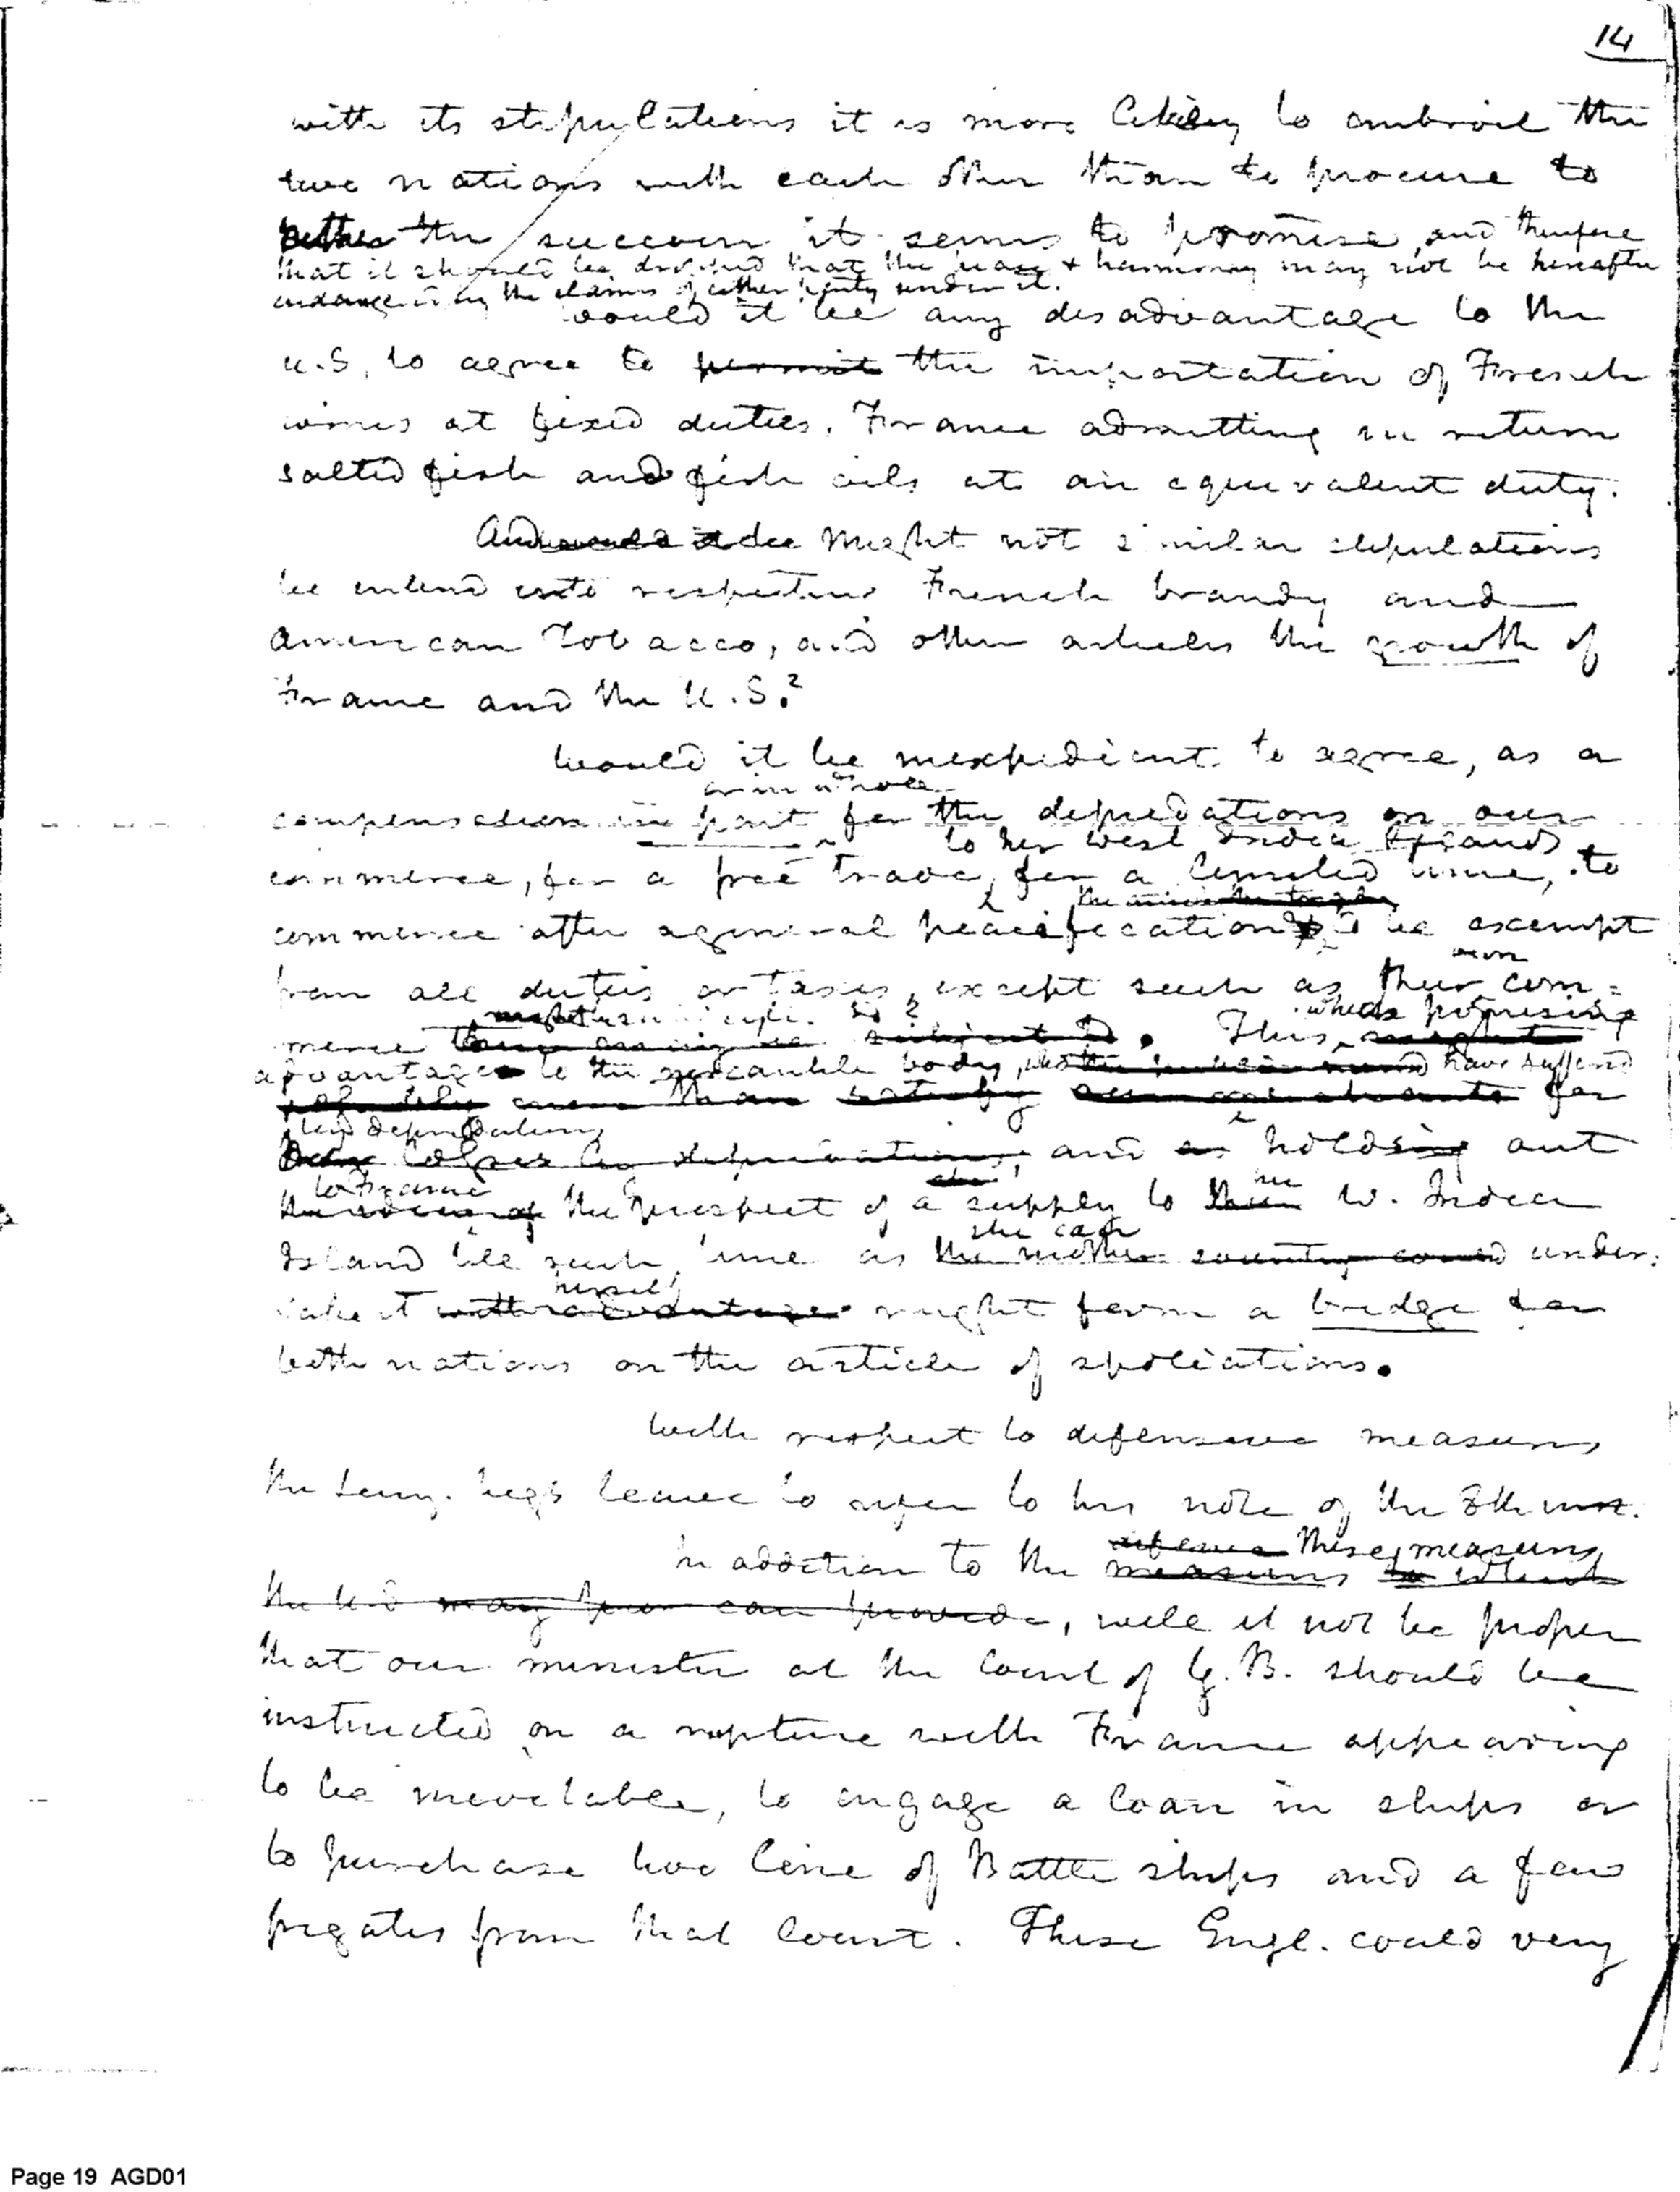 14
with its stipulations it is more likely to embroil the
two nations with each other than to procure to
the succour it seems to promise, and therefore
that it should be dropped that the peace & harmony may not be hereafter
endangered by the claims of either party under it.
Would it be any disadvantage to the
U.S. to agree to permit the importation of French
wines at fixed duties, France admitting in return
salted fish and fish oils at an equivalent duty.
And would it be Might not similar stipulations
be entered into respecting French brandy and
American Tobacco, and other articles the growth of
France and the U.S.?
Would it be inexpedient to agree, as a
or in whole
compensation in part for the depredations on our
to her West India Islands
commerce, for a free trade, for a limited time, to
commence after a general pacification to be exempt
own
from all duties or taxes, except such as their com=
which promising
merce subject to. This, might
advantages to the mercantile body, have suffered
more than satisfy for
by depredations
losses by depredations, and as holding out
to France
the prospect of a supply to them W. India
her
she can
Island till such time as the mother country could under:
herself
take it with advantage might form a bridge for
both nations on the article of spoliations.
With respect to defensive measures
the Secy. begs leave to refer to his note of the 8th inst.
defence these measures
In addition to the measures to which
the U.S may can provide, will it not be proper
that our minister at the Court of G. B. should be
instructed on a rupture with France appearing
to be inevitable, to engage a loan in ships or
to purchase two line of Battle ships and a few
frigates from that Court. These Engl. could very
Page 19 AGD01